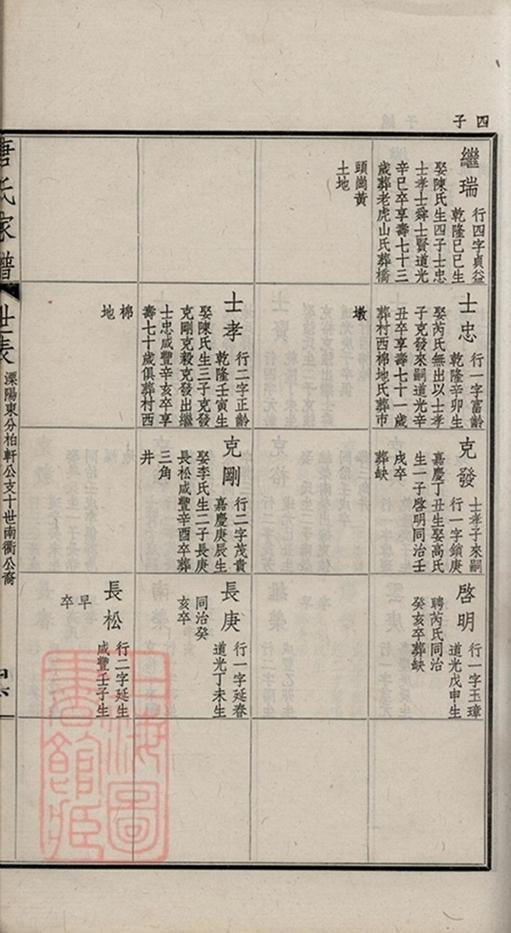 四子
繼瑞
行四字貞益
乾隆己巳生
娶陳氏生四子士忠
士孝士舜士賢道光
辛巳卒享壽七十三
歲葬老虎山氏葬橋
頭崗黃
土地
士忠
行一字富齡
乾隆辛卯生
娶芮氏無出以士孝
子克發來嗣道光辛
丑卒享壽七十一歲
葬村西棉地氏葬市
墩
克發
士孝子來嗣
行一字鎗庚
嘉慶丁丑生娶高氏
生一子啓明同治壬
戌卒
葬缺
啓明
行一字玉璋
道光戊申生
聘芮氏同治
癸亥卒葬缺
士孝
行二字正齡
乾隆壬寅生
娶陳氏生三子克發
克剛克榖克發出繼
士忠咸豐辛亥卒享
壽七十歲俱葬村西
棉
地
克剛
行二字茂貴
嘉慶庚辰生
娶李氏生二子長庚
長松咸豐辛酉卒葬
三角
井
長庚
行一字延春
道光丁未生
同治癸
亥卒
長松
行二字延生
咸豐壬子生
早
卒
唐氏家譜
世表
溧陽東分柏軒公支十世南衢公裔